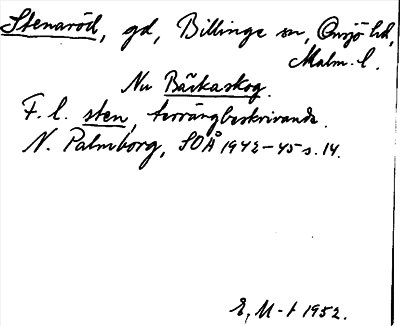 Stenaröd, gd, Billinge sn, Onsjö hd,
Malm. l.
Nu Bäckaskog.
F. l. sten, terrängbeskrivande.
N. Palmborg, SOÅ 1942-45 s. 14.
E, M-t 1952.